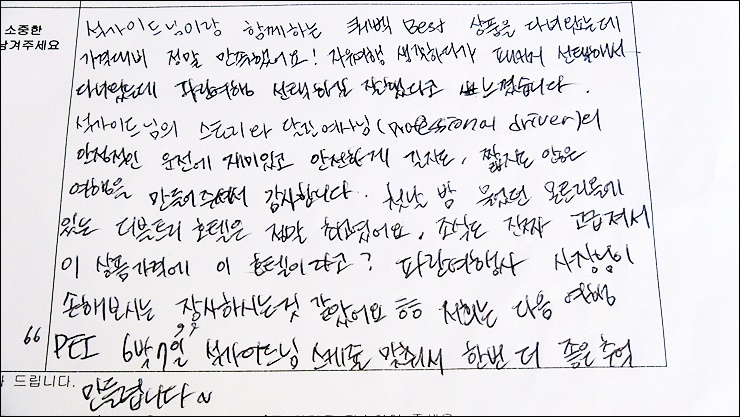 소중한
남겨주세요
석가이드님이랑 함께하는 퀘벡 Best 상품을 다녀왔는데
가격대비 정말 만족했어요! 자유여행 생각하다가 패키지 선택해서
다녀왔는데 파란여행 선택하길 잘했다고 느꼈습니다.
석가이드님의 스토리와 달인여사님(professional driver)의
안정적인 운전에 재미있고 안전하게 길지도, 짧지도 않은
여행을 만들어주셔서 감사합니다. 첫날 밤 묵었던 몬트리올에
있는 더블트리 호텔은 정말 최고였어요, 조식도 진짜 고급져서
이 상품가격에 이 호텔이라고? 파란여행사 사장님이
손해보시는 장사하시는것 같았어요 ㅎㅎ 저희는 다음 여행
66 PEI 6박7일 석가이드님 스케줄 맞춰서 한번 더 좋은 추억
드립니다.
만들렵니다~